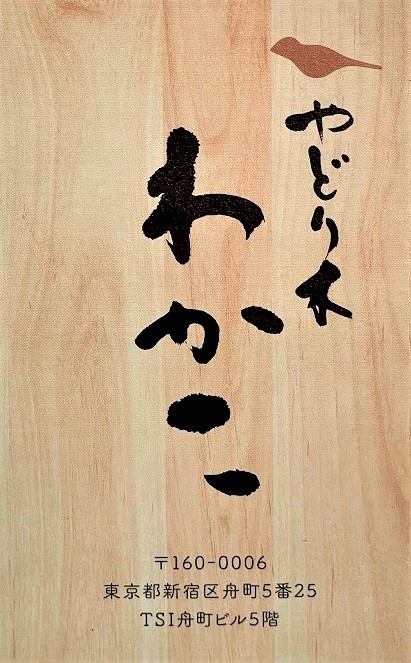 やどり木
わかこ
〒160-0006
東京都新宿区舟町5番25
TSI舟町ビル5階